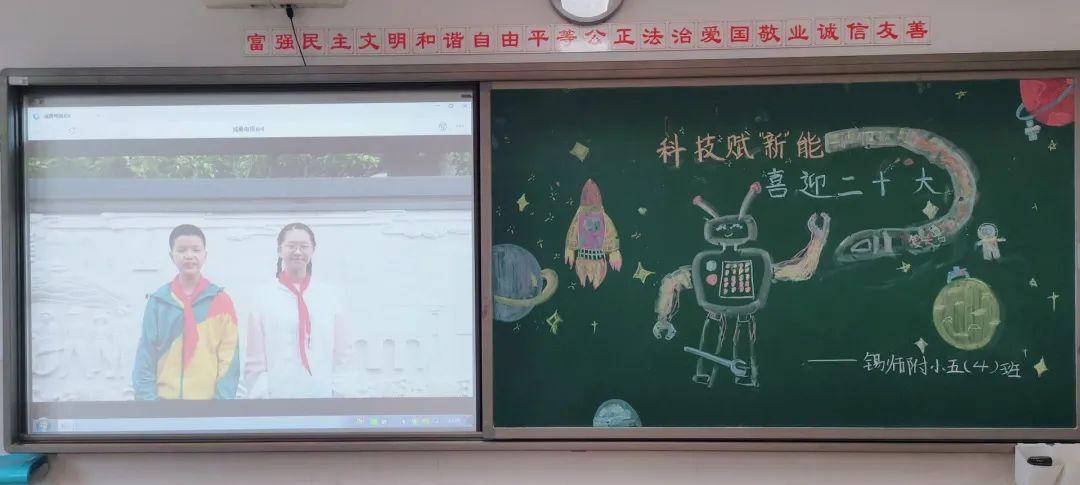 富强民主文明和谐自由平等公正法治爱国敬业诚信友善
科技赋"新"能
喜迎二十大
——锡师附小五(4)班